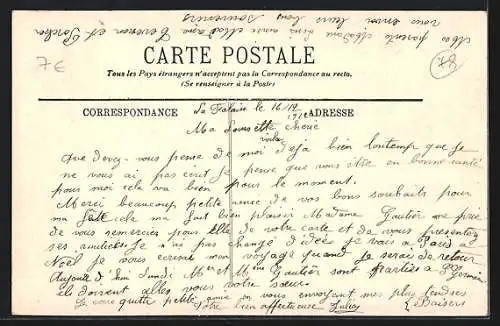 Mes parents Madame Lini ainsi Madame Tevenon et Porcher
vous envoi leurs bons souvenirs
7€
CARTE POSTALE
Tous les Pays étrangers n'acceptent pas la Correspondance au recto.
(Se renseigner à la Poste)
78
CORRESPONDANCE
ADRESSE
La Falaise le 16/12
1912
Ma Louisette chérie
Que devez-vous pense de moi voila déja bien lontemps que je
ne vous ai pas écrit je pense que vous être en bonne santé
pour moi cela va bien pour le moment.
Merci beaucoup petite amie de vos bons souhaits pour
ma fête cela ma fait bien plaisir Madame Gautier me prie
de vous remercier pour elle de votre carte et de vous presentez
ses amitiées Je n'ai pas changé d'idées je vais a Paris a
Noël je vous écrirai mon voyage quand je serai de retour
Aujourd'hui lundi Mr et Mme Gautier sont parties a St Germain
ils doivent allez voir notre sœur.
Je vous quitte petite amie en vous envoyant mes plus tendres
Baisers
Votre bien affectueuse